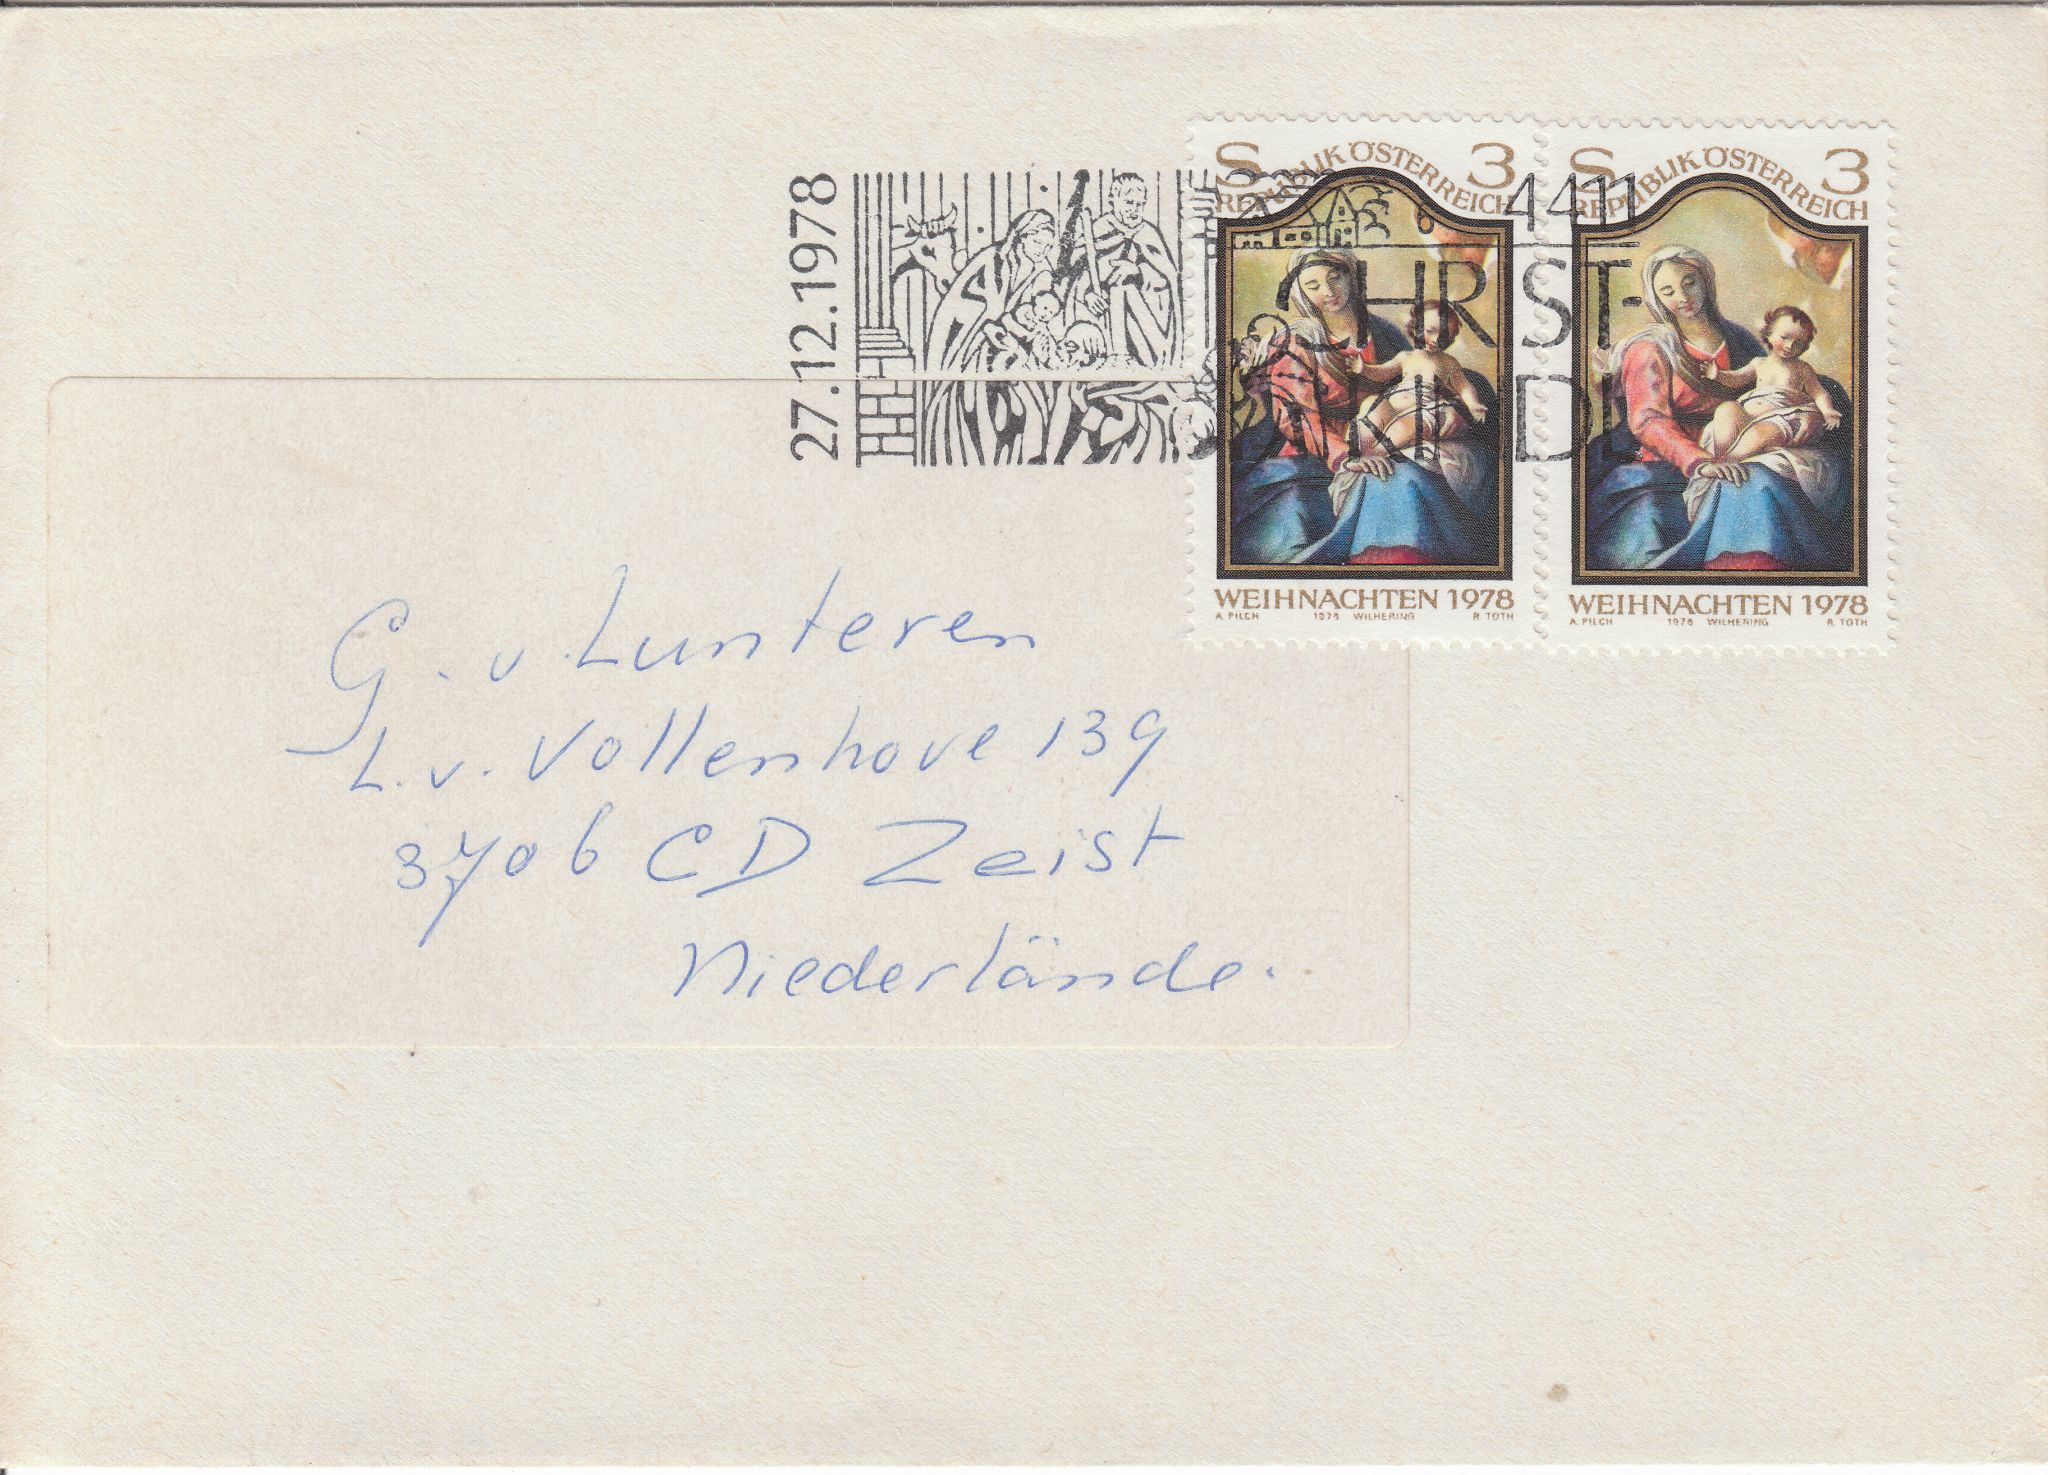 27.12.1978
6 4411
CHRIST-
KINDL
S REPUBLIK ÖSTERREICH 3
WEIHNACHTEN 1978
A. PILCH 1978 WILHERING R. TOTH
S REPUBLIK ÖSTERREICH 3
WEIHNACHTEN 1978
A. PILCH 1978 WILHERING R. TOTH
G. v. Lunteren
L. v. Vollenhove 139
3706 CD Zeist
Niederlände.